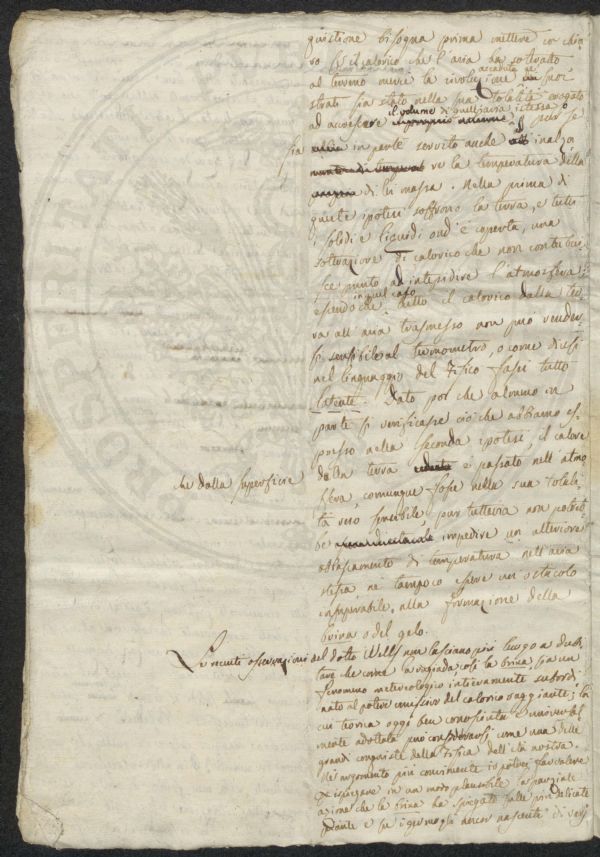 questione bisogna prima mettere in chia-
ro se il calorico che l'aria ha sottratto
al terreno merce la rivoluzione accaduta ne' suoi
strati sia stato nella sua totalità erogato
ad accrescere il volume di quell'aria istessa o
sia in parte servito anche ad inalza
re la temperatura della
di lei massa. Nella prima di
queste ipotesi soffrono la terra, e tutti
i solidi e liquidi ond'è coperta, una
sottrazione di calorico che non contribui-
sce punto ad intepidire l'atmosfera
essendochè in quel caso tutto il calorico dalla ter-
ra all'aria trasmesso non può render-
si sensibile al termometro, o come dicesi
nel linguaggio del Fisico fassi tutto
latente. Dato poi che almeno in
parte si verificasse ciò che abbiamo es-
posto nella seconda ipotesi, il calore
che dalla superficie
della terra è passato nell'atmo
sfera, comunque fosse nella sua totali-
tà reso sensibile, pur tuttavia non potreb-
be impedire un ulteriore
abbassamento di temperatura nell'aria
stessa nè tampoco essere un ostacolo
insuperabile alla formazione della
brina o del gelo.
Le recenti osservazioni del dotto Wells non lasciano più luogo a dubi-
tare che come la rugiada, così la brina, sia un
fenomeno meteorologico intieramente subordi-
nato al potere emissivo del calorico raggiante; la
cui teorica oggi ben conosciuta e universal
mente adottata può considerarsi come una delle
grandi conquiste della Fisica dell'età nostra.
Nè argomento più convincente io potrei far valere
ed ispiegare in un modo plausibile la parziale
azione che la brina ha spiegato sulle più delicate
piante e su i germogli ancor nascenti di varj